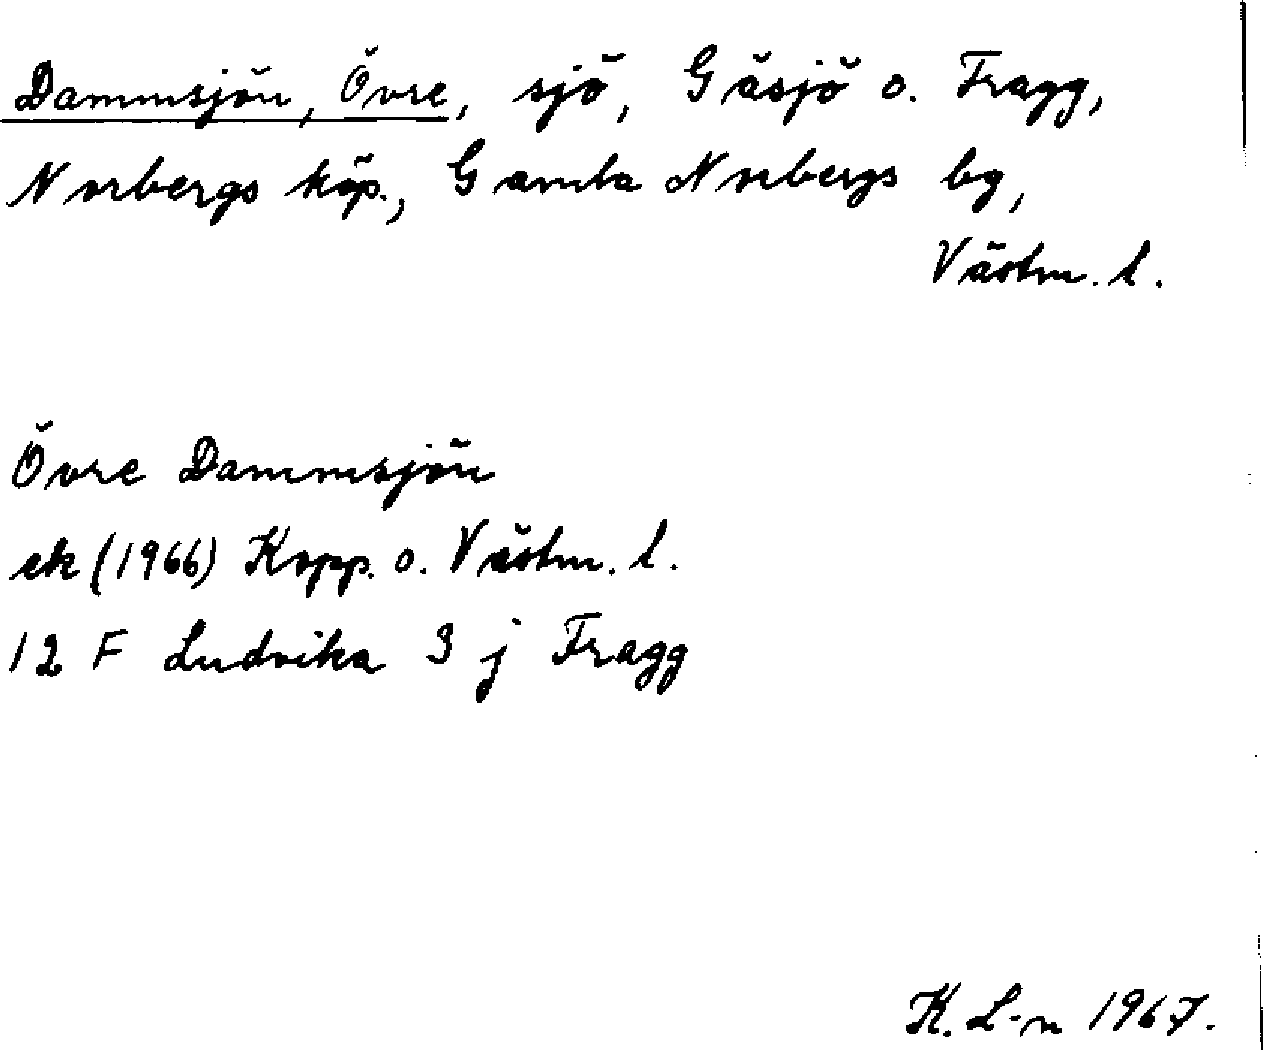 Dammsjön, Övre, sjö, Gäsjö o. Fragg,
Norbergs köp., Gamla Norbergs bg,
Västm. l.
Övre Dammsjön
ek (1966) Kopp. o. Västm. l.
12 F Ludvika 3 j Fragg
K. L-n 1967.